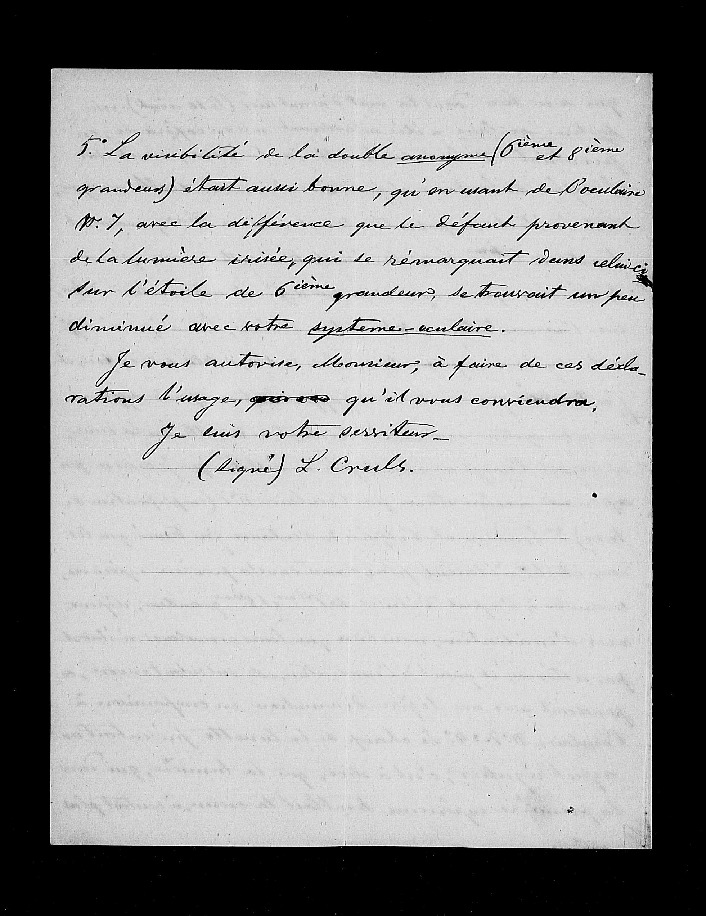 5.° La visibilité de la double anonyme (6ième et 8ième
grandeurs) était aussi bonne, qu'en usant de l'oculaire
N.° 7, avec la différence que le défaut provenant
de la lumière irisée, qui se rémarquait dans celui ci
sur l'étoile de 6ième grandeur, se trouvait un peu
diminué avec votre systeme-oculaire.
Je vous autorise, Monsieur, à faire de ces décla-
rations l'usage, qu'il vous conviendra.
Je suis votre serviteur_
(signé) L. Cruls.